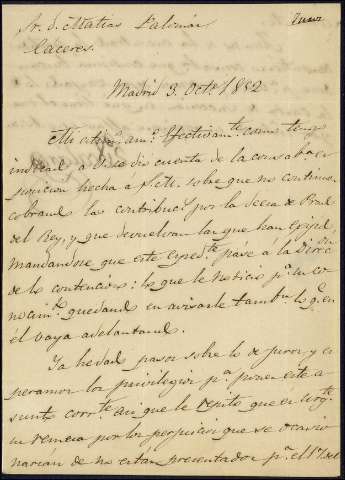 Sr. D. Matias Palomár
Cáceres.
Madrid 3. Octe. 1882
Mi estimo. amo. Efectivamte. como tengo
á dio cuenta de la
hecha á S.M. sobre que no continue
cobrando las contribuc. por la de
del Rey, y que devuelvan las que han
mandandose que este expedte. pase á la Direcon.
de lo contencioso; lo que le noticio pa. su co-
nocimto. quedando en avisarle tambn. lo q. en
él vaya adelantando.
Ya he dado pasos sobre lo de juros y es
peramos los privilegios pa. poner este a
sunto corrte. asi que le repito que es urgte.
su remesa por los perjuicios que se ocasio
narian de no estar presentados pa. el 17 del